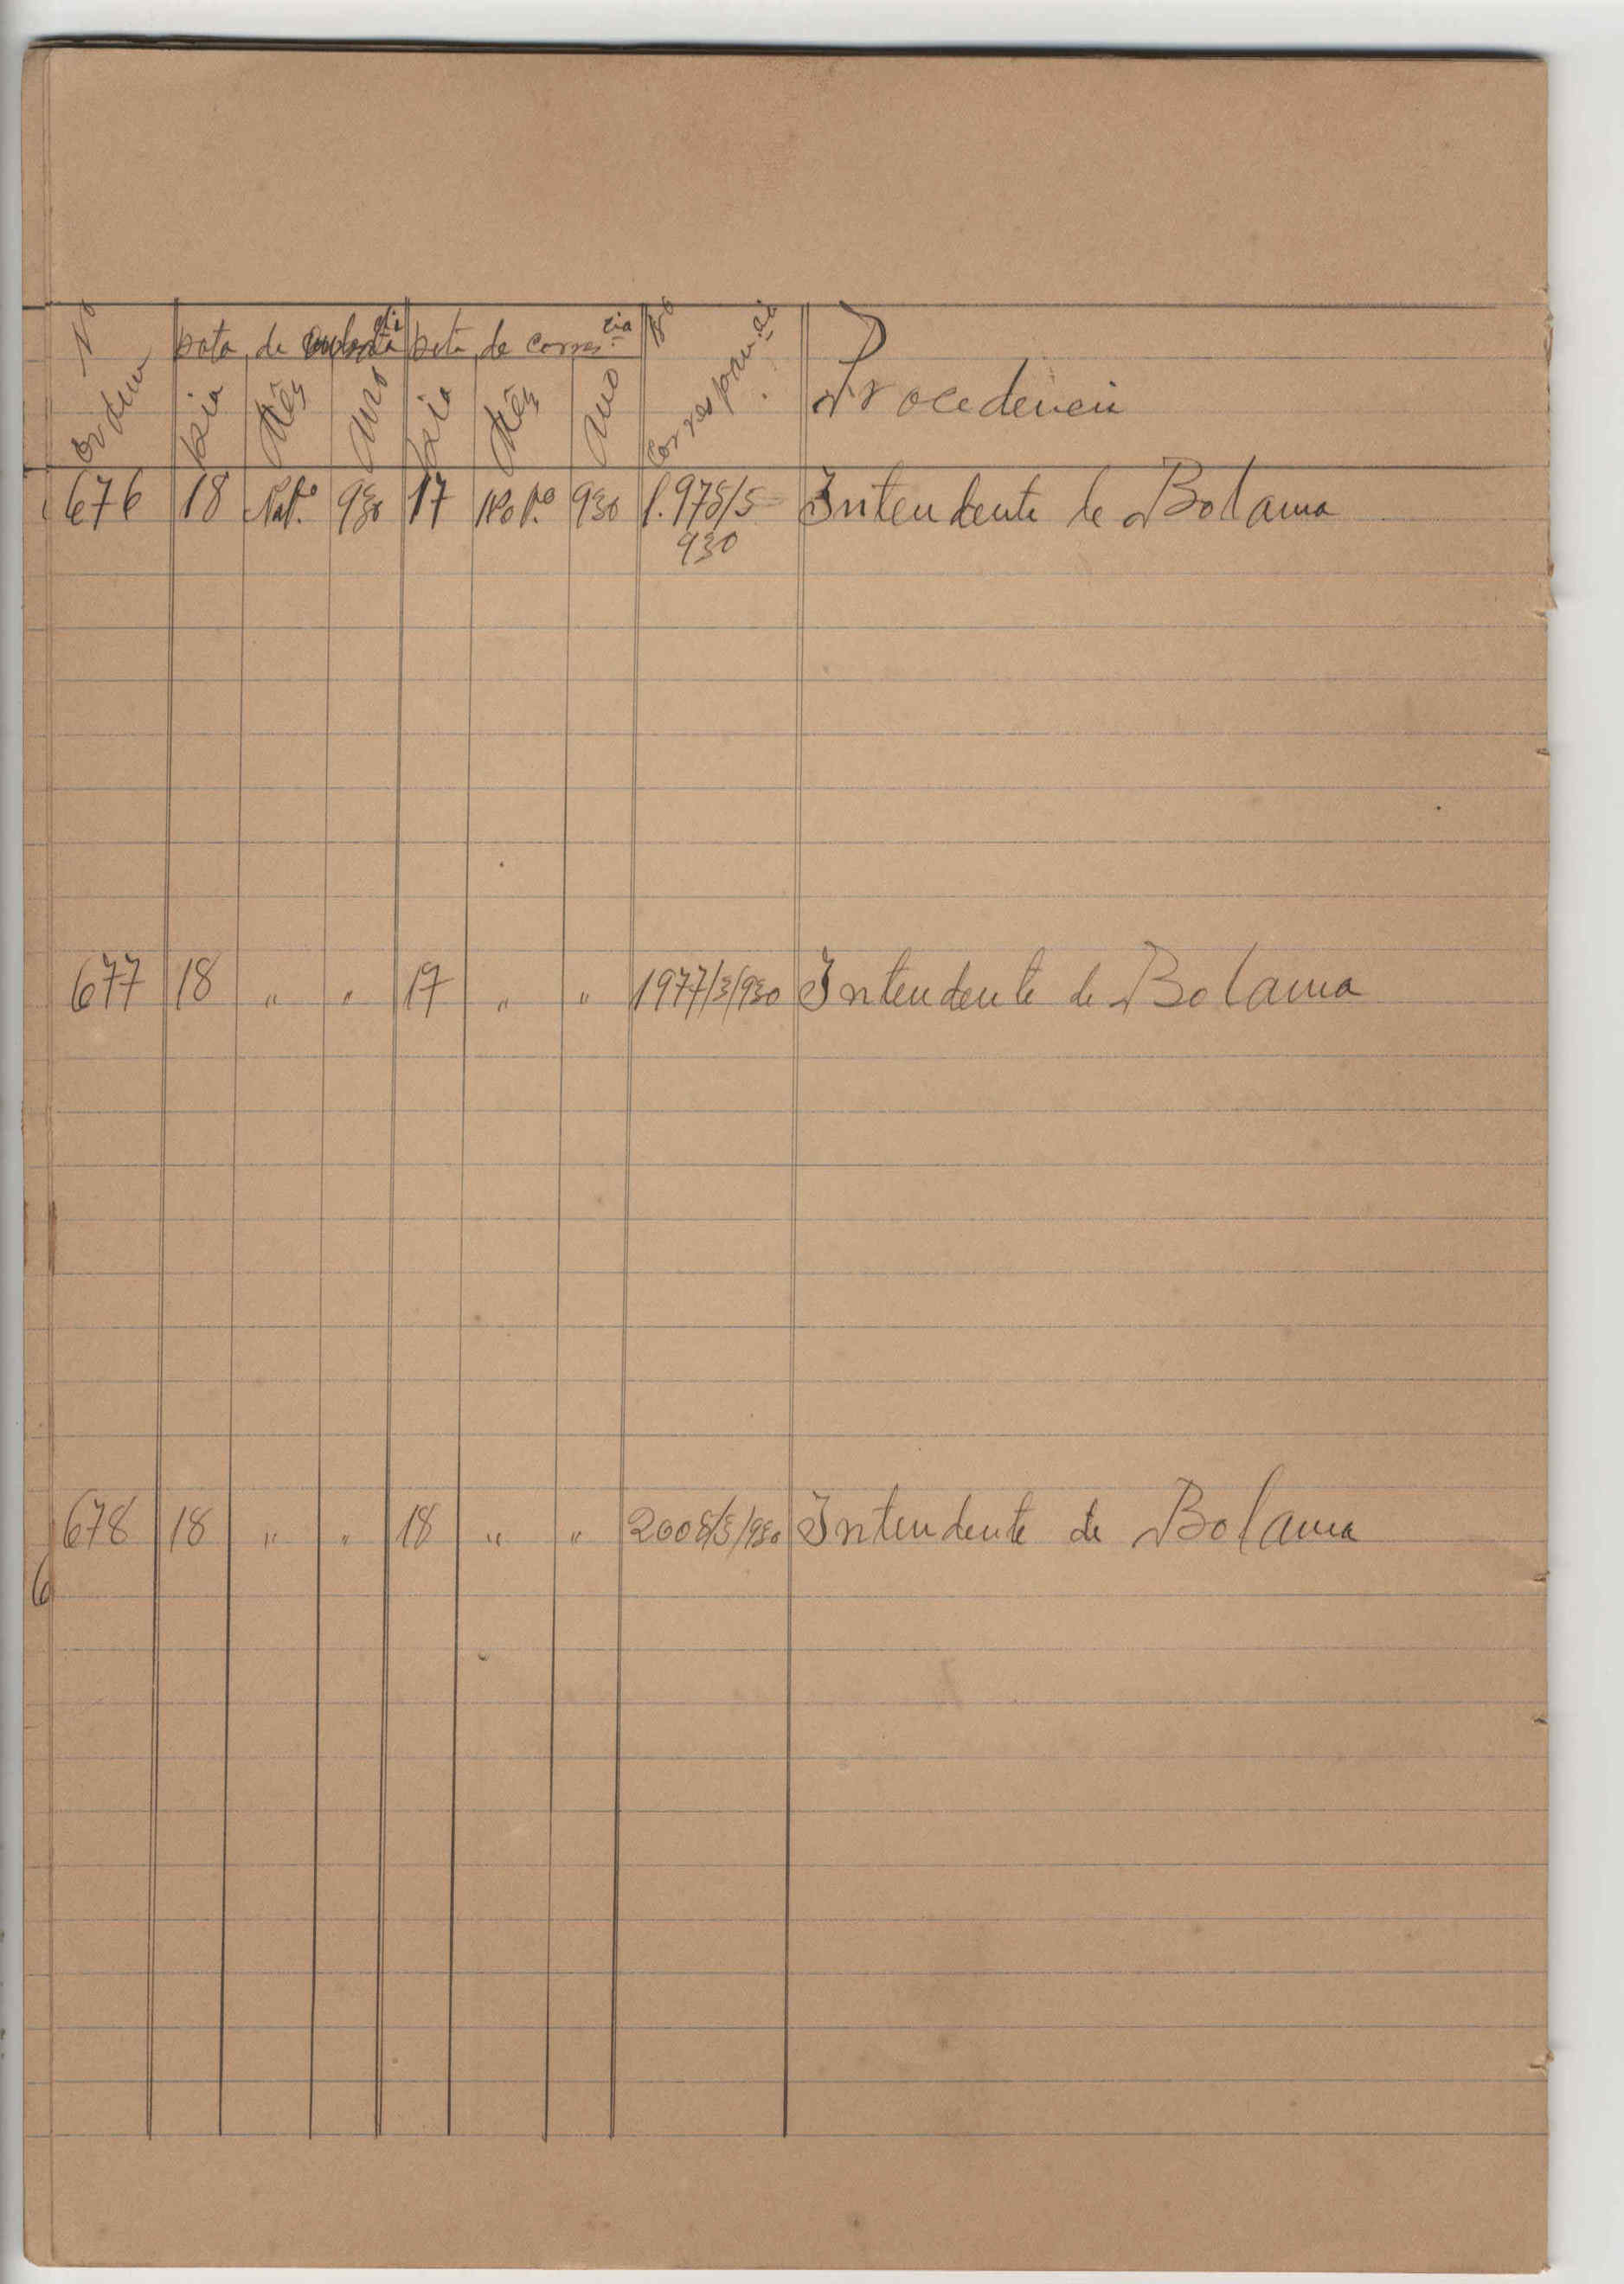 Nº Ordem
Data de
Data de corres.cia
Nº Correspon.cia
Procedencia
Dia Mês Ano Dia Mês Ano
676 18 Nob.º 930 17 Nob.º 930 1.978/5 Intendente de Bolama
930
677 18 " " 17 " " 1977/3/930 Intendente de Bolama
678 18 " " 18 " " 2008/5/930 Intendente de Bolama
6